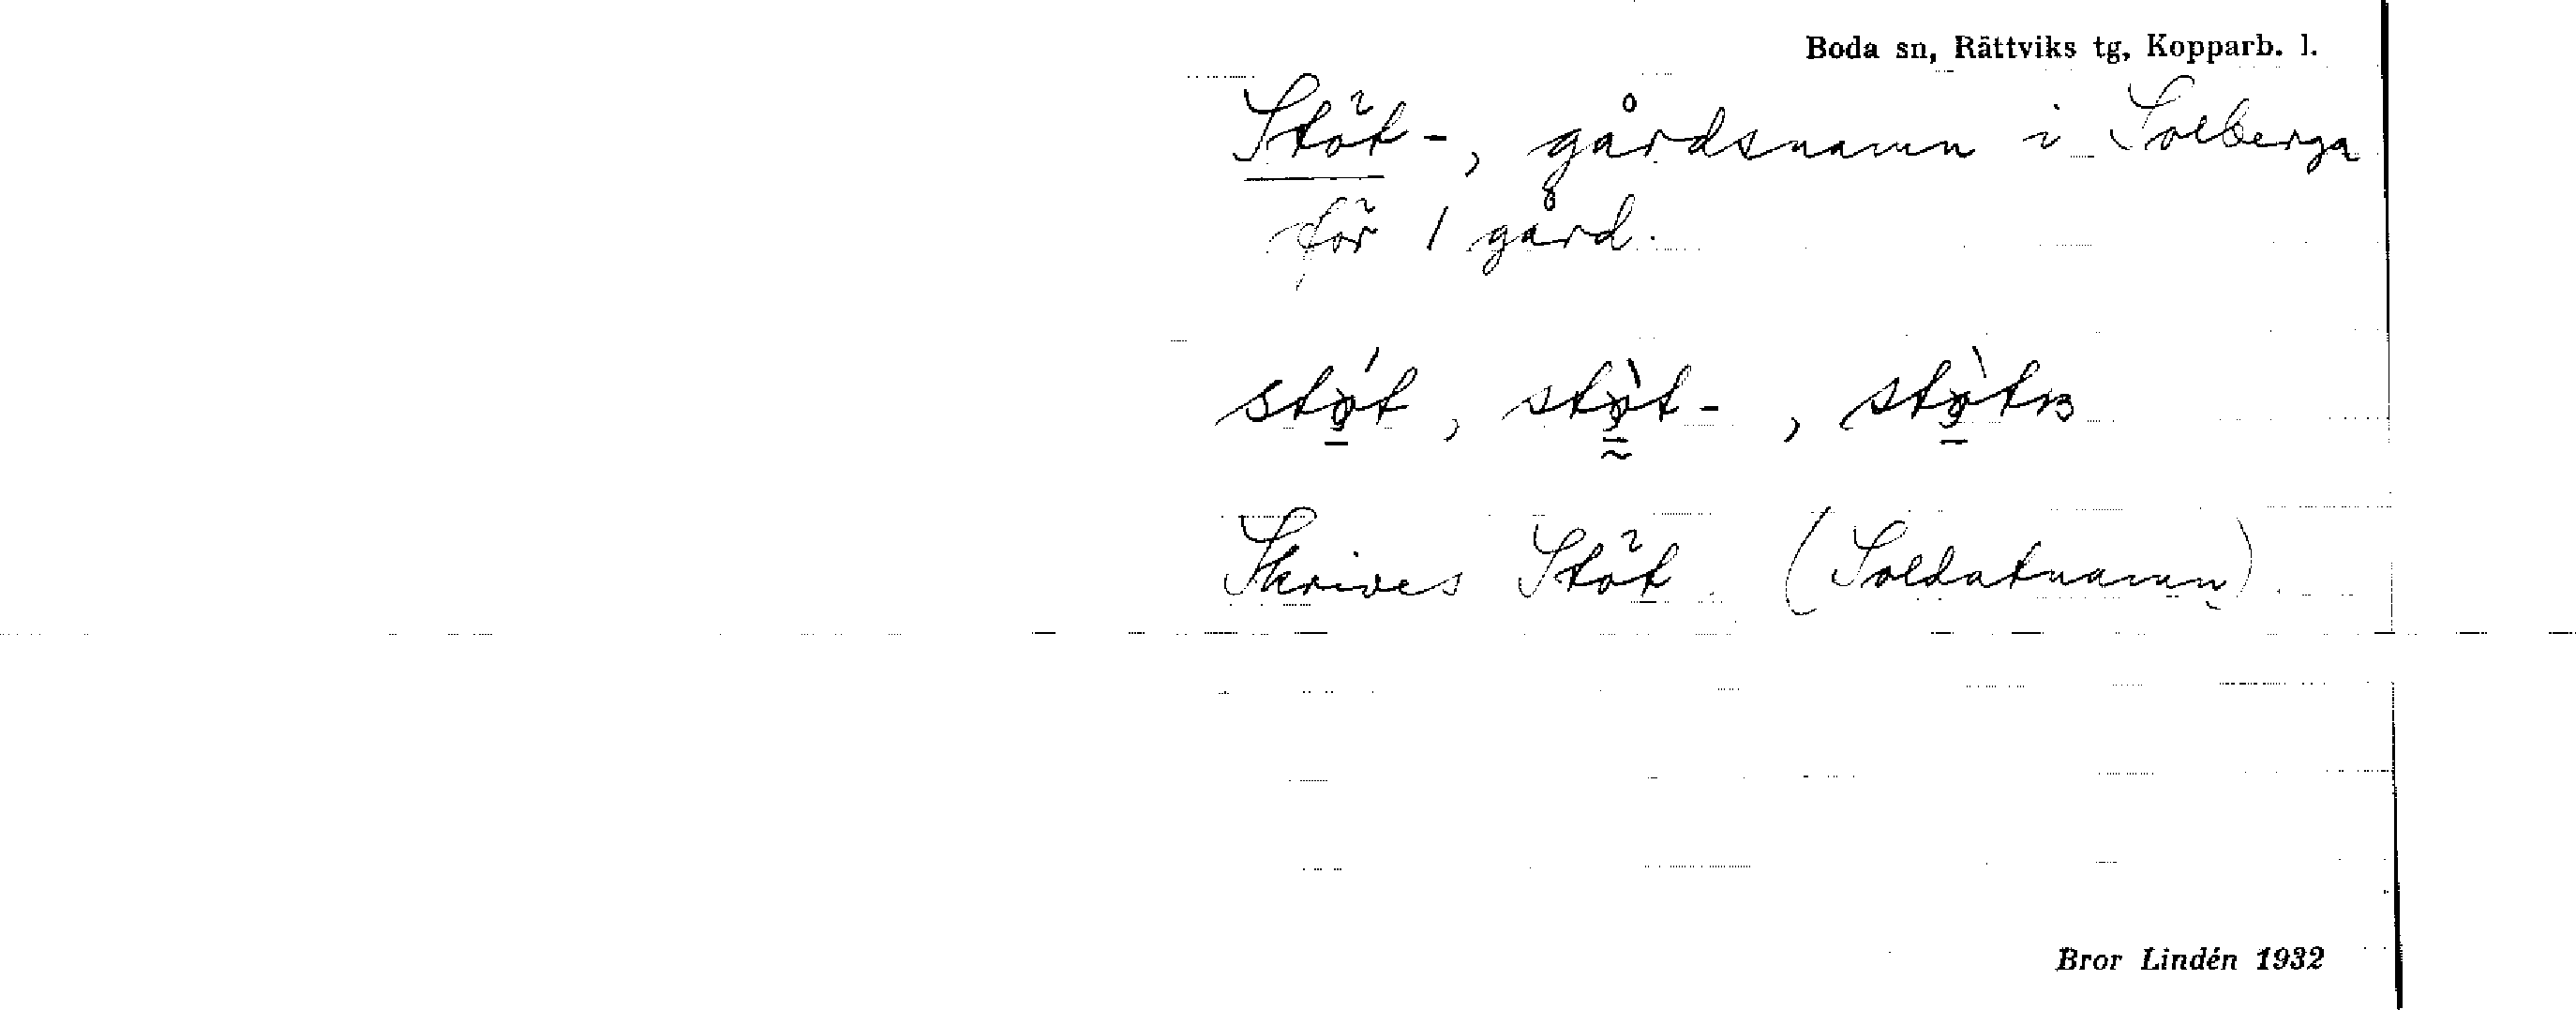 Boda sn, Rättviks tg, Kopparb. l.
Stöt-, gårdsnamn i Solberga
för 1 gård.
Skrives Stöt. (Soldatnamn).
Bror Lindén 1932